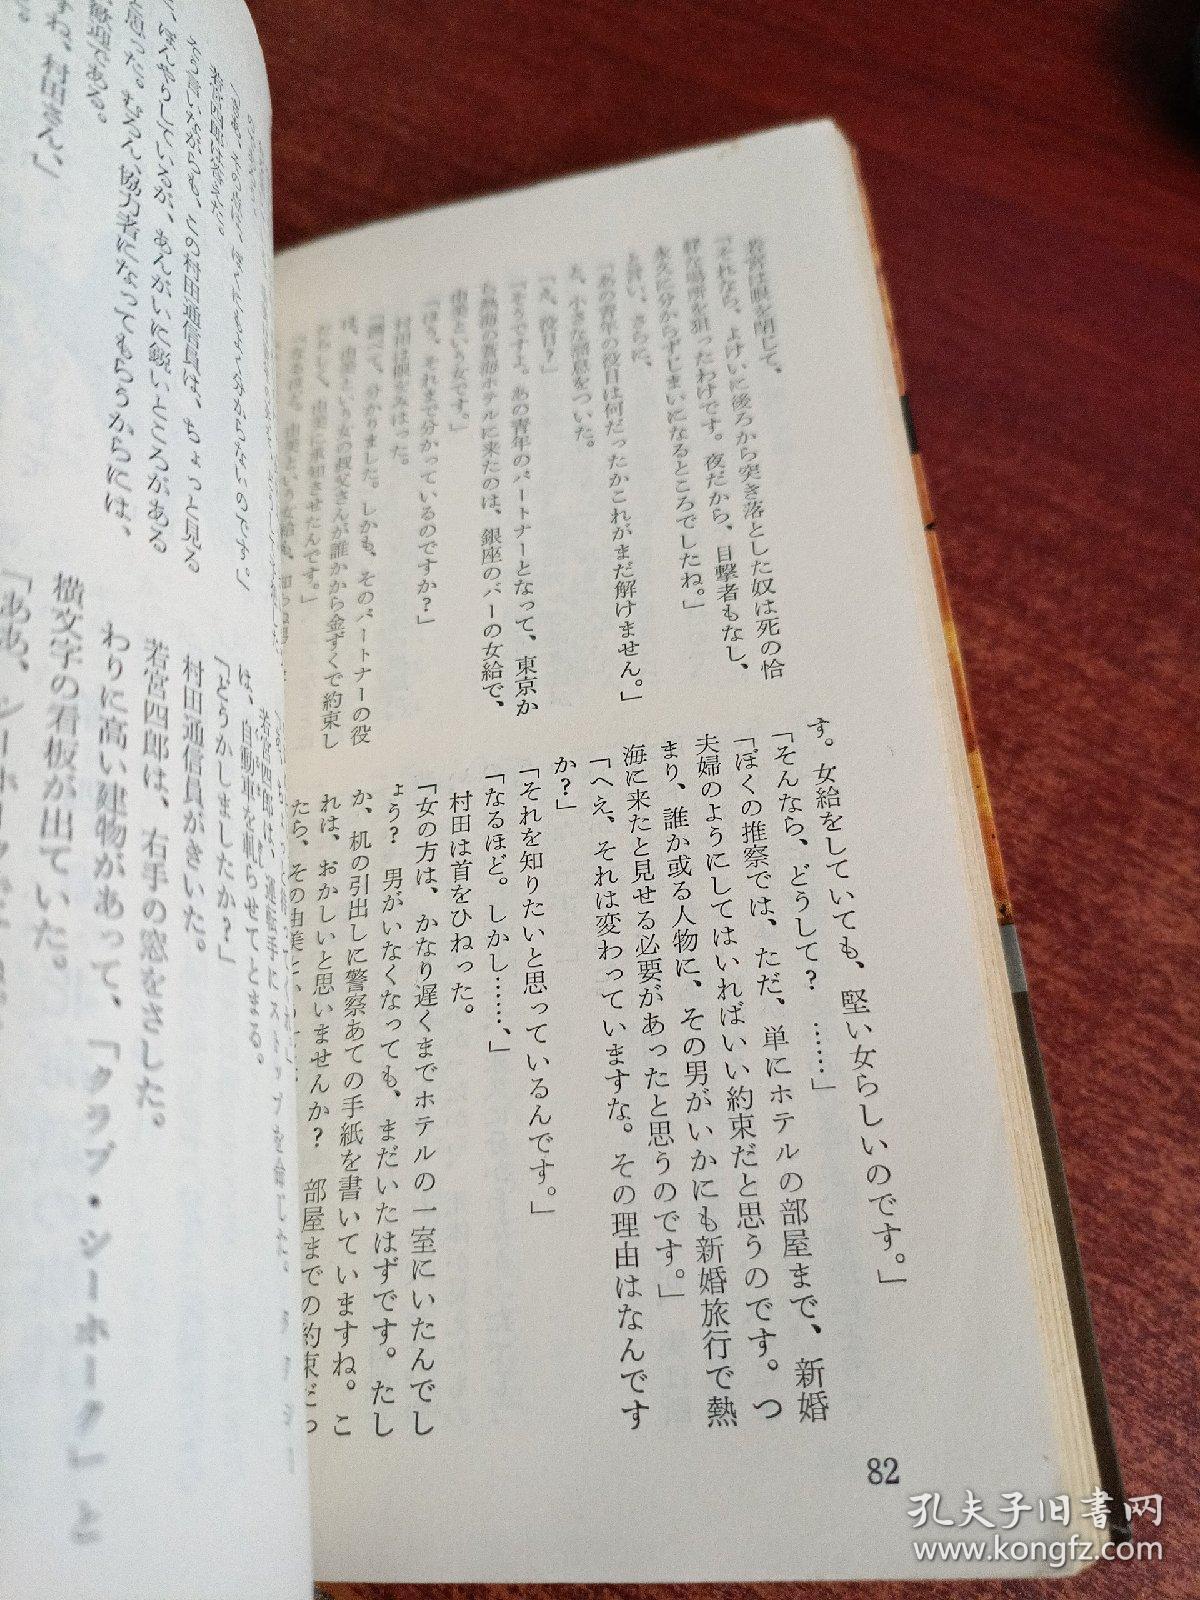 若宮は眼を閉じて、
「それなら、よけいに後ろから突き落とした奴は死の恰
好な場所を狙ったわけです。夜だから、目撃者もなし、
永久に分からずじまいになるところでしたね。」
と言い、さらに、
「あの青年の役目は何だったかこれがまだ解けません。」
と、小さな溜息をついた。
「え、役目？」
「そうですよ。あの青年のパートナーとなって、東京か
ら熱海の蒼海ホテルに来たのは、銀座のバーの女給で、
由美という女です。」
「ほう、それまで分かっているのですか？」
村田は眼をみはった。
「調べて、分かりました。しかも、そのパートナーの役
は、由美という女の叔父さんが誰かから金ずくで約束し
たらしく、由美に承知させたんです。」
す。女給をしていても、堅い女らしいのです。」
「そんなら、どうして？　……」
「ぼくの推察では、ただ、単にホテルの部屋まで、新婚
夫婦のようにしてはいればいい約束だと思うのです。つ
まり、誰か或る人物に、その男がいかにも新婚旅行で熱
海に来たと見せる必要があったと思うのです。」
「へえ、それは変わっていますな。その理由はなんです
か？」
「それを知りたいと思っているんです。」
「なるほど。しかし……、」
村田は首をひねった。
「女の方は、かなり遅くまでホテルの一室にいたんでし
ょう？　男がいなくなっても、まだいたはずです。たし
か、机の引出しに警察あての手紙を書いていますね。こ
れは、おかしいと思いませんか？　部屋までの約束だっ
たら、その由美と
82
そう言いながらも、この村田通信員は、ちょっと見る
ぼんやりしているが、あんがいに鋭いところがある
と思った。むろん、協力者になってもらうからには、
歓迎である。
すね、村田さん」
若宮四郎は、運転手にストップを命じた。
は、自動車を軋らせてとまる。
「どうかしましたか？」
村田通信員がきいた。
若宮四郎は、右手の窓をさした。
わりに高い建物があって、「クラブ・シーホーク」と
横文字の看板が出ていた。
「ああ、シーホーク
孔夫子旧书网
www.kongfz.com